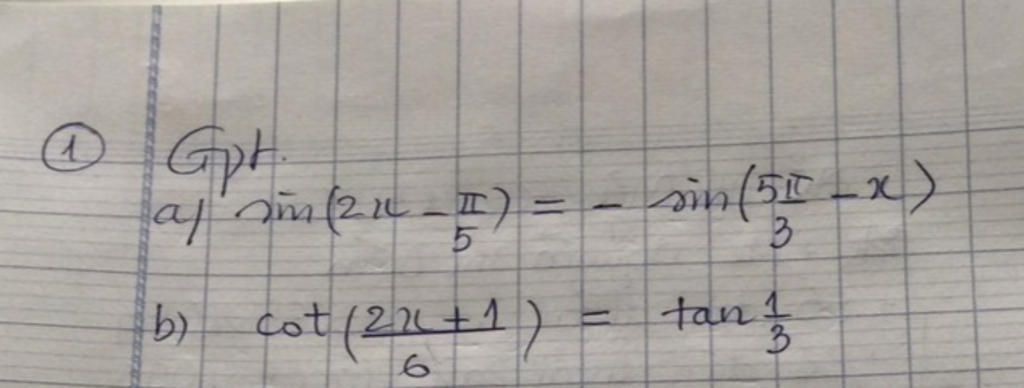 ① Gpt.
a) sin(2x - π/5) = - sin(5π/3 - x)
b) cot((2x+1)/6) = tan 1/3